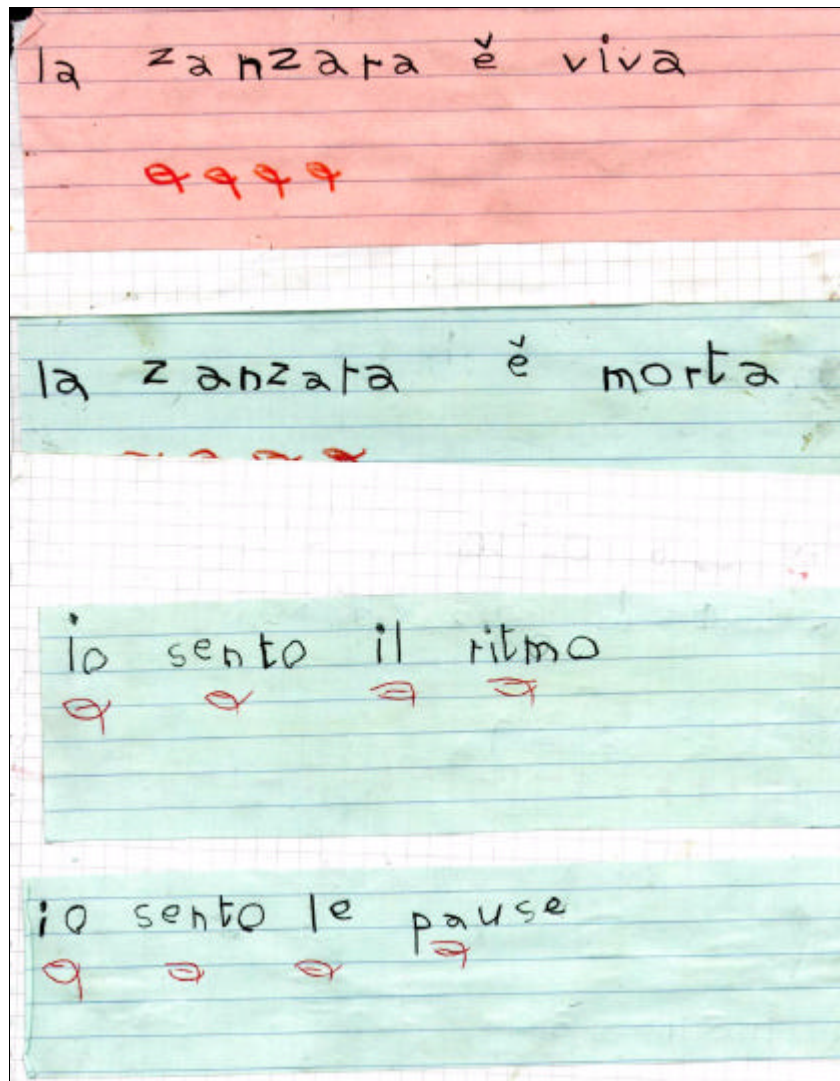 la zanzara è viva
la zanzara è morta
io sento il ritmo
io sento le pause